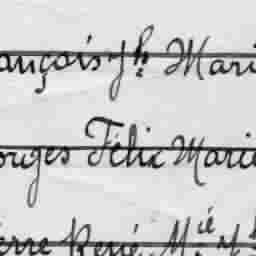 ançois Jh Mari
orges Félix Marie
erre René M.ié J